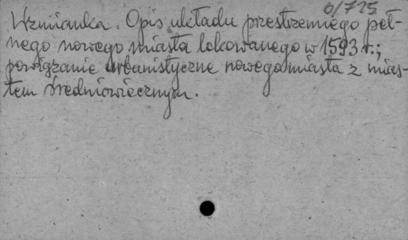 0/725
Wzmianka. Opis układu przestrzennego peł-
nego nowego miasta lokowanego w 1593 r.;
powiązanie urbanistyczne nowego miasta z mias-
tem średniowiecznym.